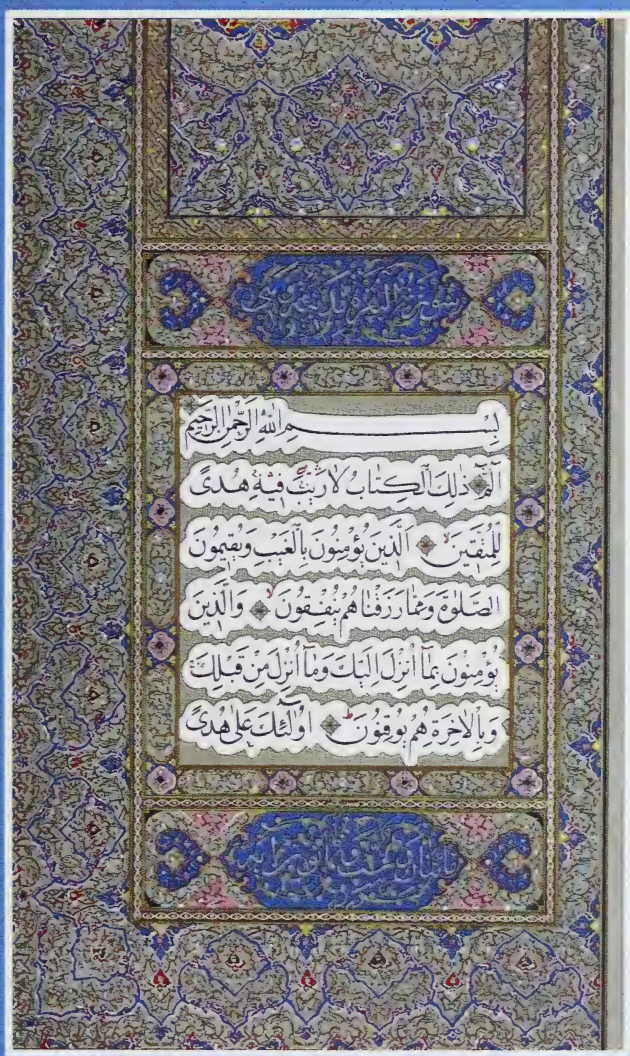 سورة البقرة
بِسْمِ اللهِ الرَّحْمٰنِ الرَّحِيمِ
الٓمٓ ذٰلِكَ الْكِتَابُ لَا رَيْبَ فِيهِ هُدًى
لِلْمُتَّقِينَ الَّذِينَ يُؤْمِنُونَ بِالْغَيْبِ وَيُقِيمُونَ
الصَّلٰوةَ وَمِمَّا رَزَقْنَاهُمْ يُنْفِقُونَ وَالَّذِينَ
يُؤْمِنُونَ بِمَٓا اُنْزِلَ اِلَيْكَ وَمَٓا اُنْزِلَ مِنْ قَبْلِكَ
وَبِالْاٰخِرَةِ هُمْ يُوقِنُونَ اُولٰٓئِكَ عَلٰى هُدًى